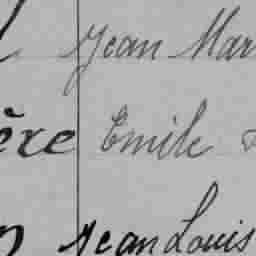 Jean Mar
ère Emile
Jean Louis